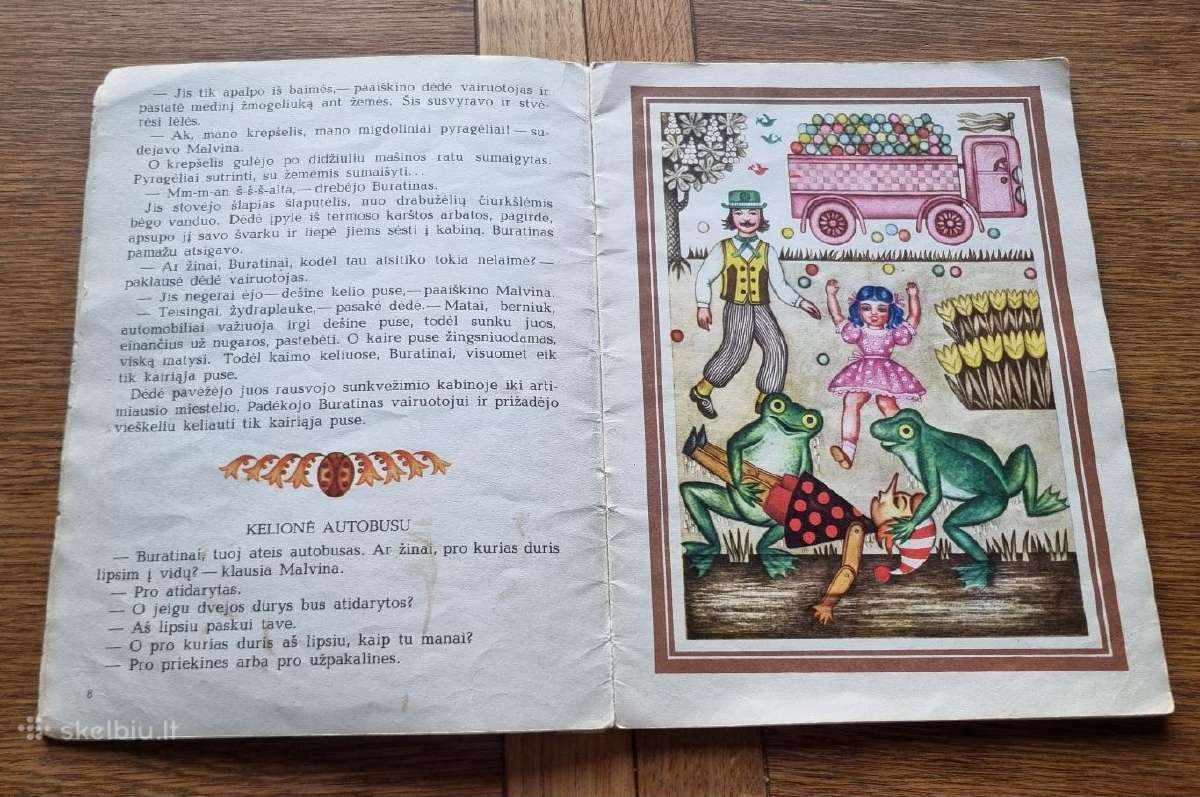 — Jis tik apalpo iš baimės,— paaiškino dėdė vairuotojas ir
pastatė medinį žmogeliuką ant žemės. Šis susvyravo ir stvė-
rėsi lėlės.
— Ak, mano krepšelis, mano migdoliniai pyragėliai! — su-
dejavo Malvina.
O krepšelis gulėjo po didžiuliu mašinos ratu sumaigytas.
Pyragėliai sutrinti, su žemėmis sumaišyti...
— Mm-m-an š-š-š-alta,— drebėjo Buratinas.
Jis stovėjo šlapias šlaputėlis, nuo drabužėlių čiurkšlėmis
bėgo vanduo. Dėdė įpylė iš termoso karštos arbatos, pagirdė,
apsupo jį savo švarku ir liepė jiems sėsti į kabiną. Buratinas
pamažu atsigavo.
— Ar žinai, Buratinai, kodėl tau atsitiko tokia nelaimė? —
paklausė dėdė vairuotojas.
— Jis negerai ėjo — dešine kelio puse,— paaiškino Malvina.
— Teisingai, žydraplauke,— pasakė dėdė.— Matai, berniuk,
automobiliai važiuoja irgi dešine puse, todėl sunku juos,
einančius už nugaros, pastebėti. O kaire puse žingsniuodamas,
viską matysi. Todėl kaimo keliuose, Buratinai, visuomet eik
tik kairiąja puse.
Dėdė pavėžėjo juos rausvojo sunkvežimio kabinoje iki arti-
miausio miestelio. Padėkojo Buratinas vairuotojui ir prižadėjo
vieškeliu keliauti tik kairiąja puse.
KELIONĖ AUTOBUSU
— Buratinai, tuoj ateis autobusas. Ar žinai, pro kurias duris
lipsim į vidų? — klausia Malvina.
— Pro atidarytas.
— O jeigu dvejos durys bus atidarytos?
— Aš lipsiu paskui tave.
— O pro kurias duris aš lipsiu, kaip tu manai?
— Pro priekines arba pro užpakalines.
8
skelbiu.lt